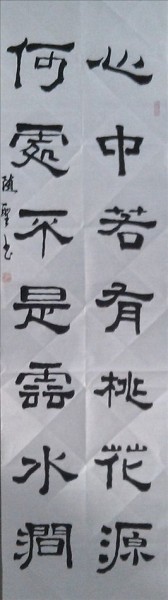 心中若有桃花源
何處不是雲水澗